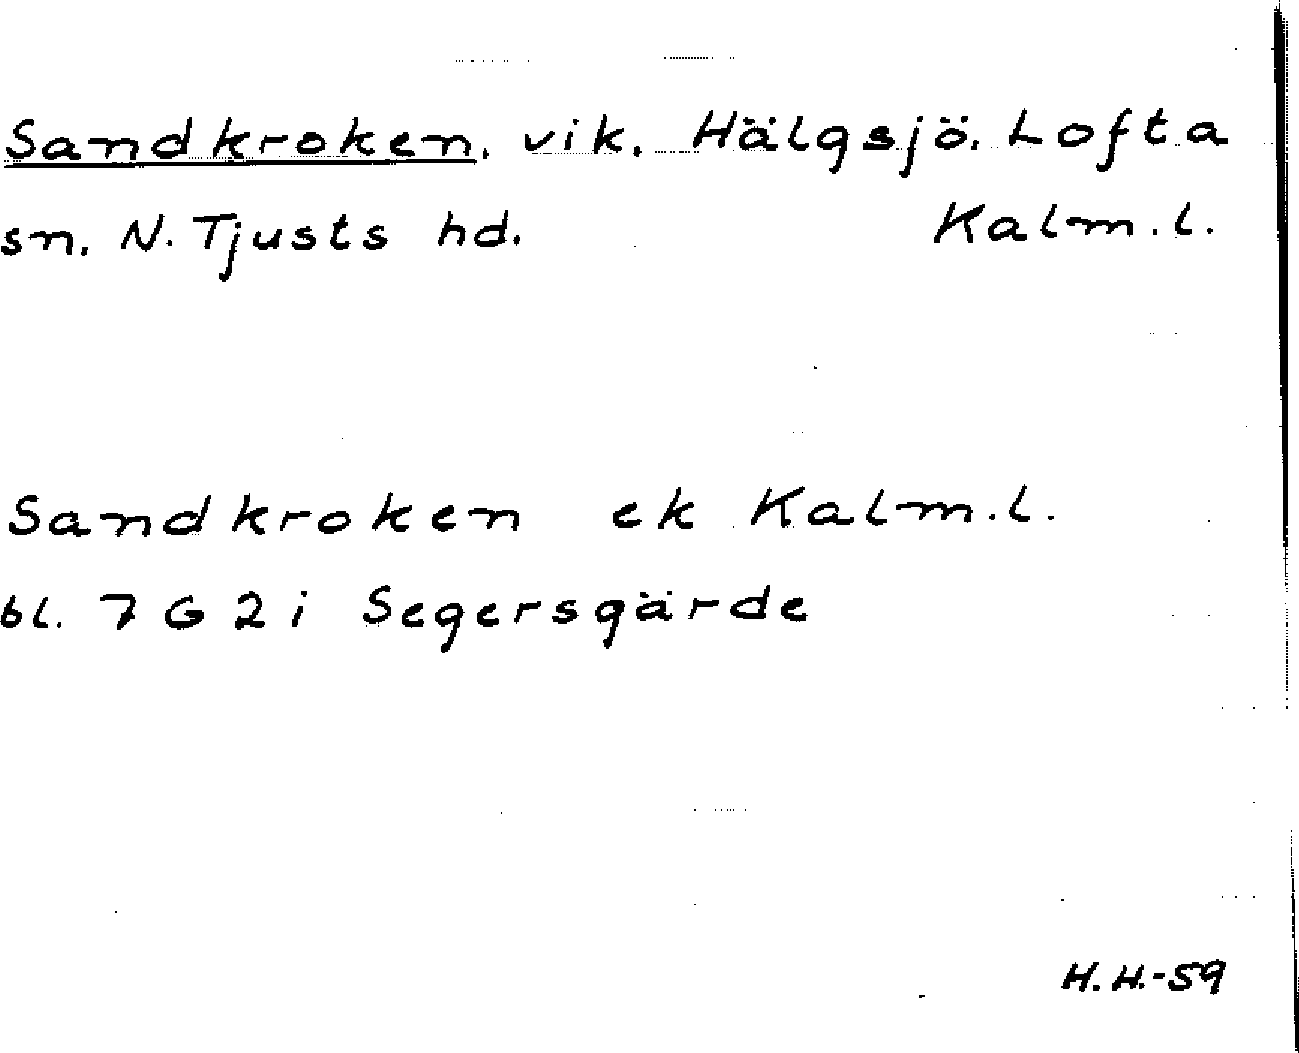 Sandkroken, vik, Hälgsjö, Lofta
sn, N. Tjusts hd. Kalm.l.
Sandkroken ek Kalm.l.
bl. 7 G 2 i Segersgärde
H.H.-59